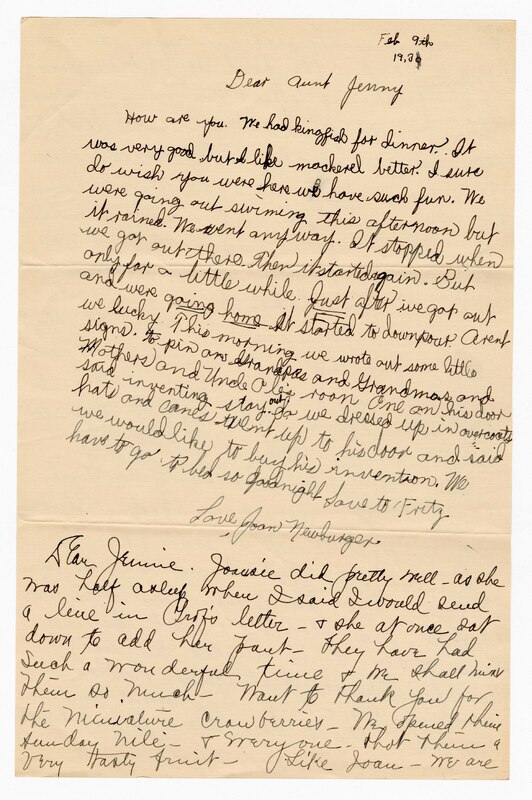 Feb 9th
193
Dear Aunt Jenny
How are you. We had kingfish for dinner. It
was very good but I like mackerel better. I sure
do wish you were here we have such fun. We
were going out swiming this afternoon but
it rained. We went any way. It stopped when
we got out there. Then it started again. But
only for a little while. Just after we got out
and were going home it started to downpour. Arent
we lucky. This morning we wrote out some little
signs. to pin on Grandpas and Grandmas, and
Mothers and Uncle room One on his door
said inventing stay out. So we dressed up in overcoats
hats and canes went up to his door and said
we would like to buy his invention. We
have to go to bed so goodnight Love to Fritz
Love, Joan Newburger
Dear Jennie. Joansie did pretty well - as she
was half asleep when I said I would send
a line in letter - & she at once sat
down to add her part - They have had
such a wonderful time & we shall miss
them so much - Want to thank you for
the miniature cranberries - We opened them
Sunday nite - & everyone thot them a
very tasty fruit - Like Joan - we are